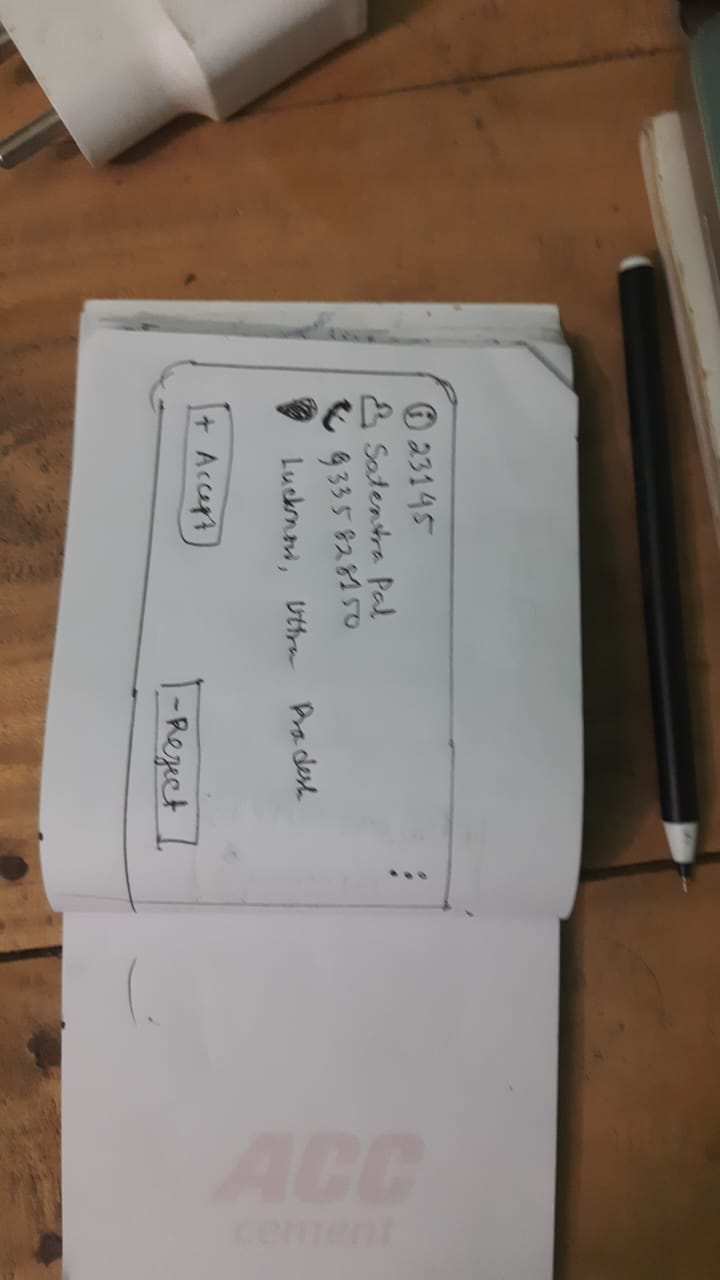 23145
Satentra Pal
9335828150
Lucknow, Uttar Pradesh
+ Accept
- Reject
ACC
cement